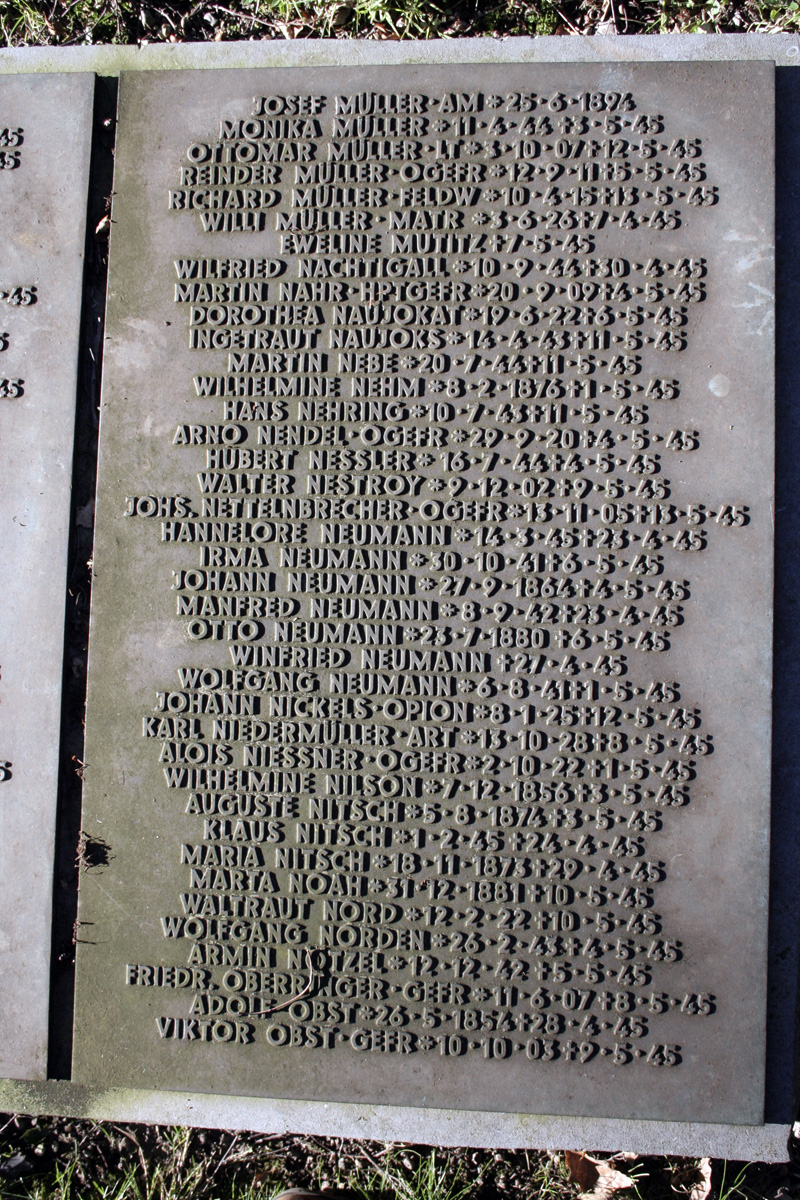 JOSEF MÜLLER·AM*25·6·1894
MONIKA MÜLLER*11·4·44†3·5·45
OTTOMAR MÜLLER·LT*3·10·07†12·5·45
REINDER MÜLLER·OGEFR*12·9·11†5·5·45
RICHARD MÜLLER·FELDW*10·4·15†13·5·45
WILLI MÜLLER·MATR*3·6·26†7·4·45
EWELINE MUTITZ†7·5·45
WILFRIED NACHTIGALL*10·9·44†30·4·45
MARTIN NAHR·HPTGEFR*20·9·09†4·5·45
DOROTHEA NAUJOKAT*19·6·22†6·5·45
INGETRAUT NAUJOKS*14·4·43†11·5·45
MARTIN NEBE*20·7·44†11·5·45
WILHELMINE NEHM*8·2·1876†1·5·45
HANS NEHRING*10·7·43†11·5·45
ARNO NENDEL·OGEFR*29·9·20†4·5·45
HUBERT NESSLER*16·7·44†4·5·45
WALTER NESTROY*9·12·02†9·5·45
JOHS. NETTELNBRECHER·OGEFR*13·11·05†13·5·45
HANNELORE NEUMANN*14·3·45†23·4·45
IRMA NEUMANN*30·10·41†6·5·45
JOHANN NEUMANN*27·9·1864†4·5·45
MANFRED NEUMANN*8·9·42†23·4·45
OTTO NEUMANN*23·7·1880†6·5·45
WINFRIED NEUMANN†27·4·45
WOLFGANG NEUMANN*6·8·41†1·5·45
JOHANN NICKELS·OPION*8·1·25†12·5·45
KARL NIEDERMÜLLER·ART*13·10·28†8·5·45
ALOIS NIESSNER·OGEFR*2·10·22†1·5·45
WILHELMINE NILSON*7·12·1856†3·5·45
AUGUSTE NITSCH*5·8·1874†3·5·45
KLAUS NITSCH*1·2·45†24·4·45
MARIA NITSCH*18·11·1873†29·4·45
MARTA NOAH*31·12·1881†10·5·45
WALTRAUT NORD*12·2·22†10·5·45
WOLFGANG NORDEN*26·2·43†4·5·45
ARMIN NÖTZEL*12·12·42†5·5·45
FRIEDR. OBERRINGER·GEFR*11·6·07†8·5·45
ADOLF OBST*26·5·1854†28·4·45
VIKTOR OBST·GEFR*10·10·03†9·5·45